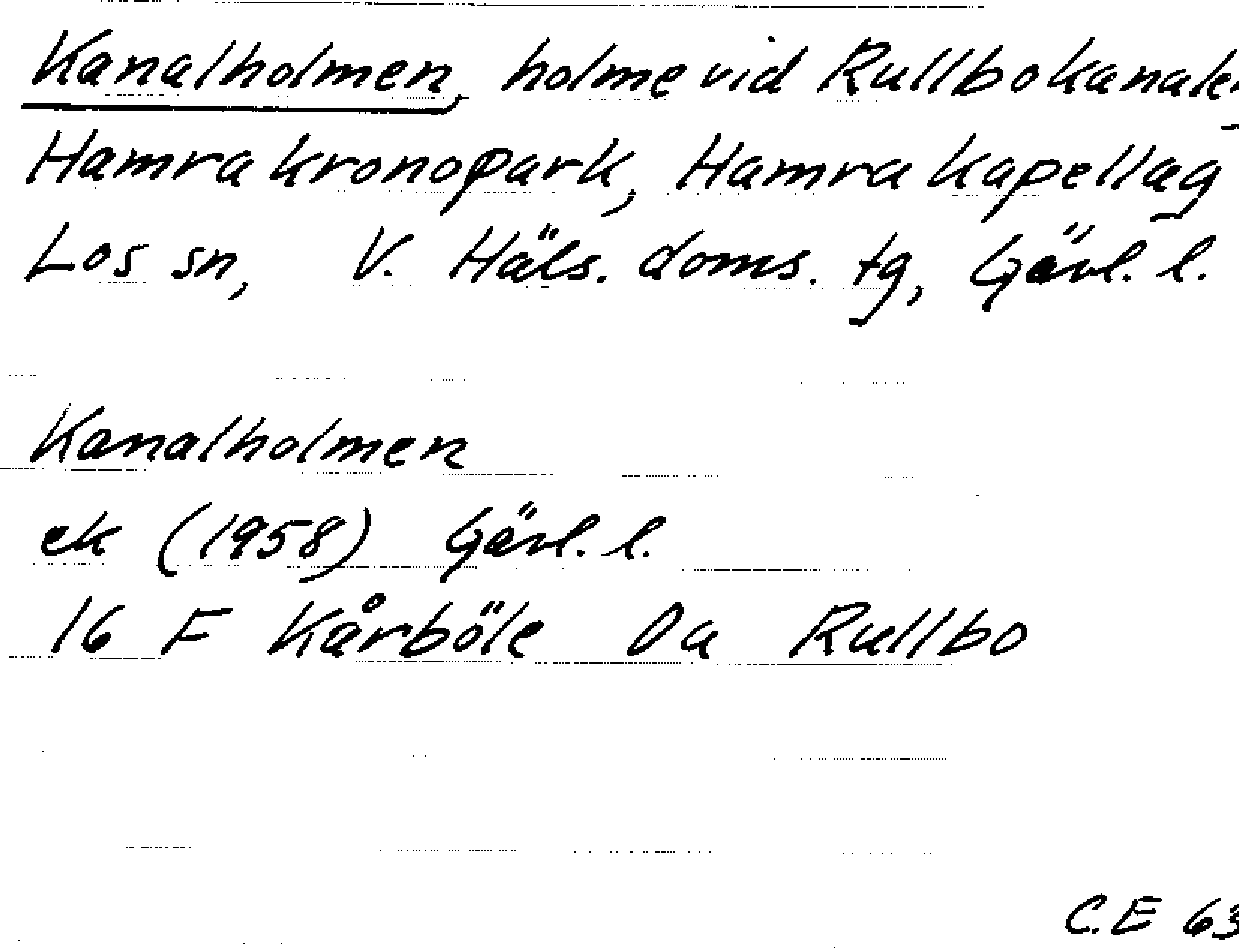 Kanalholmen, holme vid Rullbokanalen,
Hamra kronopark, Hamra kapellag
Los sn, V. Häls. doms. tg, Gävl. l.
Kanalholmen
ek (1958) Gävl. l.
16 F Kårböle 0a Rullbo
C.E 63